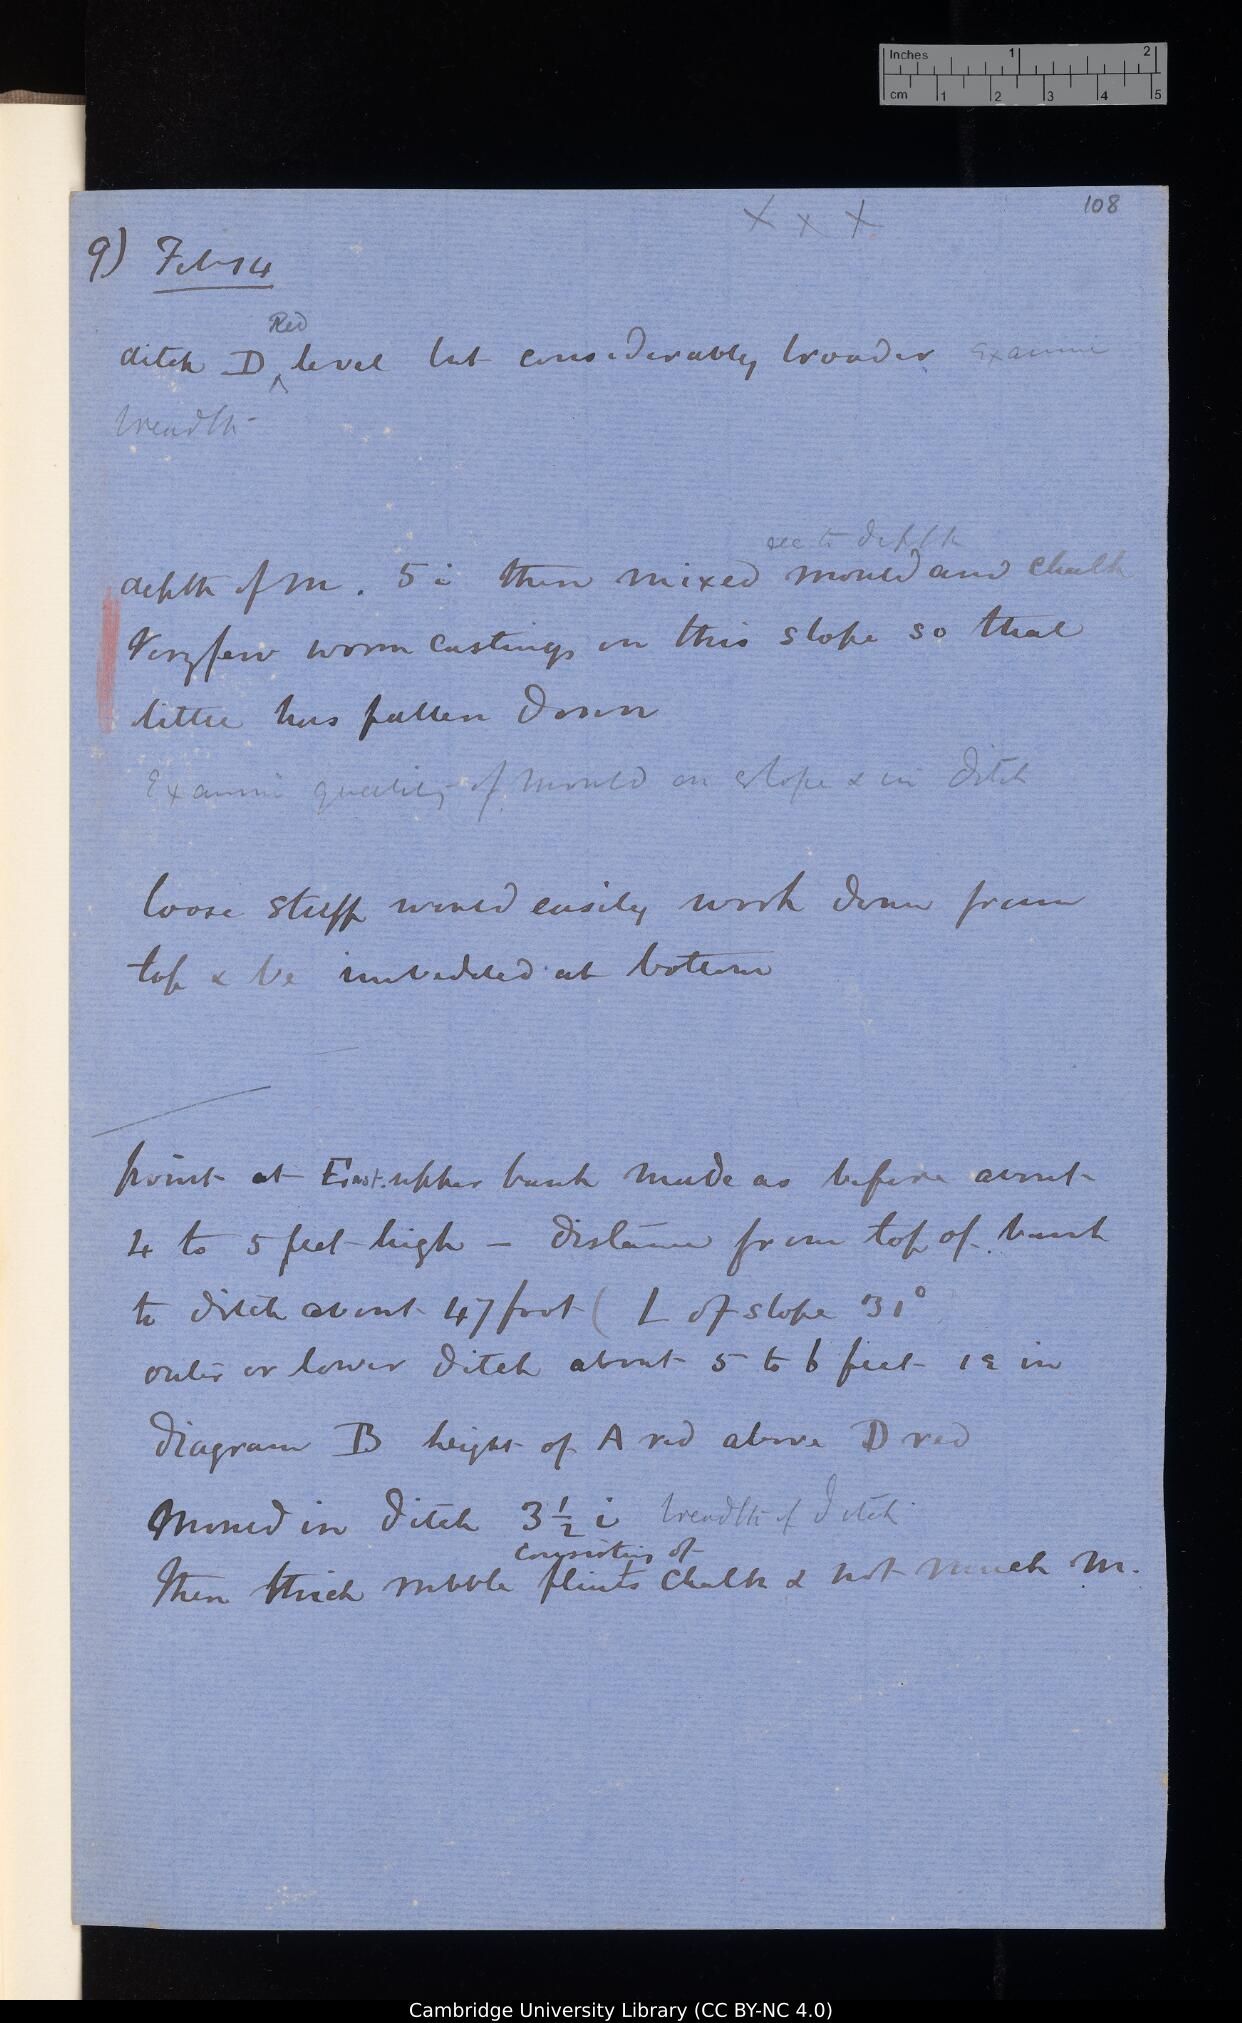 Inches 1 2
cm 1 2 3 4 5
108
x x x
9) Feb 14
Red
ditch D ^ level but considerably broader Examine
breadth
see to depth
depth of m. 5 i then mixed mould and chalk
Very few worm castings on this slope so that
little has fallen down
Examine quality of mould on slope & in ditch
loose stuff would easily work down from
top & be imbedded at bottom
point at East. upper bank made as before about
4 to 5 feet high — distance from top of bank
to ditch about 47 foot ( L of slope 31°
outer or lower ditch about 5 to 6 feet in
diagram B height of A red above D red
Mould in ditch 3 1/2 i breadth of ditch
consisting of
Then thick rubble flints chalk & not much m.
Cambridge University Library (CC BY-NC 4.0)